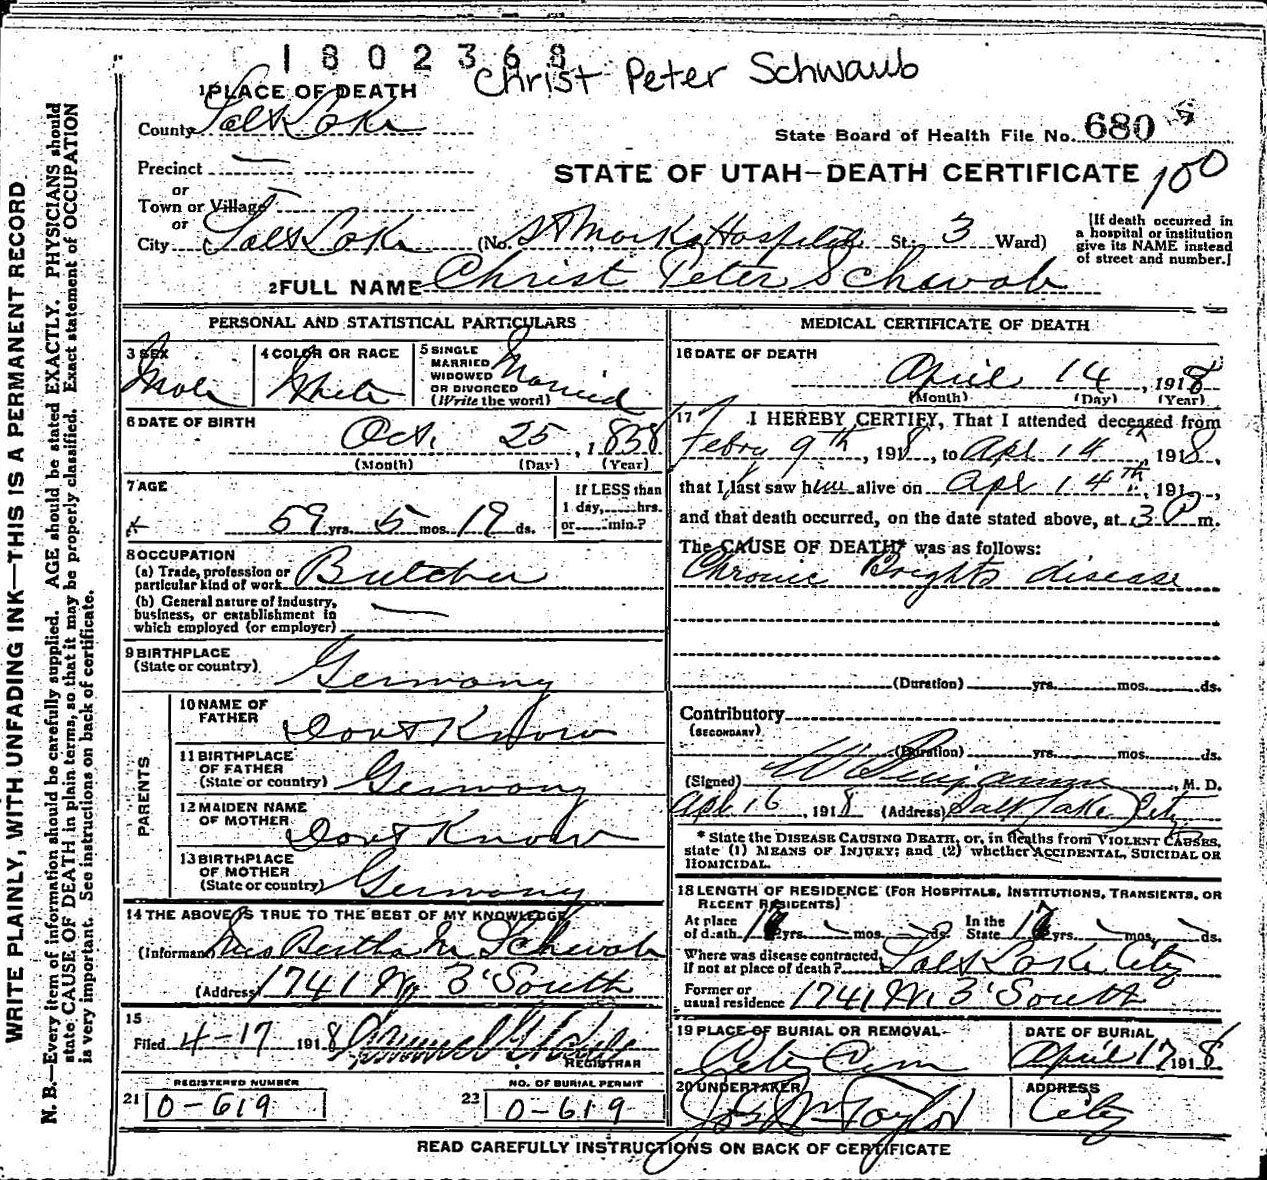 1802368
Christ Peter Schwaub
1 PLACE OF DEATH
County Salt Lake
State Board of Health File No. 680
Precinct —
STATE OF UTAH—DEATH CERTIFICATE
100
or
Town or Village —
or
City Salt Lake (No. St Marks Hospital St.; 3 Ward)
[If death occurred in
a hospital or institution
give its NAME instead
of street and number.]
2 FULL NAME Christ Peter Schwab
PERSONAL AND STATISTICAL PARTICULARS
3 SEX
Male
4 COLOR OR RACE
White
5 SINGLE
MARRIED
WIDOWED
OR DIVORCED
(Write the word)
Married
6 DATE OF BIRTH
Oct. 25, 1858
(Month) (Day) (Year)
7 AGE
59 yrs. 5 mos. 19 ds.
If LESS than
1 day,......hrs.
or......min.?
8 OCCUPATION
(a) Trade, profession or
particular kind of work Butcher
(b) General nature of industry,
business, or establishment in
which employed (or employer) —
9 BIRTHPLACE
(State or country) Germany
PARENTS
10 NAME OF
FATHER Dont Know
11 BIRTHPLACE
OF FATHER
(State or country) Germany
12 MAIDEN NAME
OF MOTHER Dont Know
13 BIRTHPLACE
OF MOTHER
(State or country) Germany
14 THE ABOVE IS TRUE TO THE BEST OF MY KNOWLEDGE
(Informant) Mrs Bertha M Schwab
(Address) 1741 W 3' South
15
Filed 4-17 1918
REGISTRAR
REGISTERED NUMBER
21 0-619
NO. OF BURIAL PERMIT
22 0-619
MEDICAL CERTIFICATE OF DEATH
16 DATE OF DEATH
April 14, 1918
(Month) (Day) (Year)
17 I HEREBY CERTIFY, That I attended deceased from
Febry 9th, 1918, to Apl 14th, 1918,
that I last saw him alive on Apl 14th, 191...,
and that death occurred, on the date stated above, at 3 P m.
The CAUSE OF DEATH* was as follows:
Chronic Brights disease
(Duration) yrs. mos. ds.
Contributory
(SECONDARY)
(Duration) yrs. mos. ds.
(Signed) M. D.
Apl 16, 1918 (Address) Salt Lake City
* State the DISEASE CAUSING DEATH, or, in deaths from VIOLENT CAUSES,
state (1) MEANS OF INJURY; and (2) whether ACCIDENTAL, SUICIDAL OR
HOMICIDAL.
18 LENGTH OF RESIDENCE (FOR HOSPITALS, INSTITUTIONS, TRANSIENTS, OR
RECENT RESIDENTS)
At place
of death yrs. — mos. — ds.
In the
State yrs. — mos. — ds.
Where was disease contracted,
If not at place of death? Salt Lake City
Former or
usual residence 1741 W. 3' South
19 PLACE OF BURIAL OR REMOVAL
City Cem
DATE OF BURIAL
April 17 1918
20 UNDERTAKER
Jos Wm Taylor
ADDRESS
City
READ CAREFULLY INSTRUCTIONS ON BACK OF CERTIFICATE
WRITE PLAINLY, WITH UNFADING INK—THIS IS A PERMANENT RECORD
N. B.—Every item of information should be carefully supplied. AGE should be stated EXACTLY. PHYSICIANS should
state CAUSE OF DEATH in plain terms, so that it may be properly classified. Exact statement of OCCUPATION
is very important. See instructions on back of certificate.